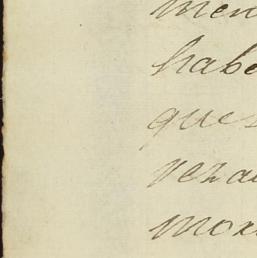 men
habe
ques
vera
mor